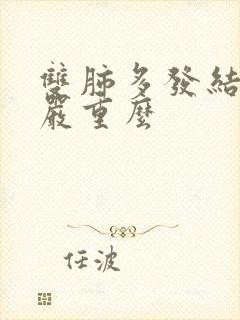 雙肺多發結
嚴重麼
任波